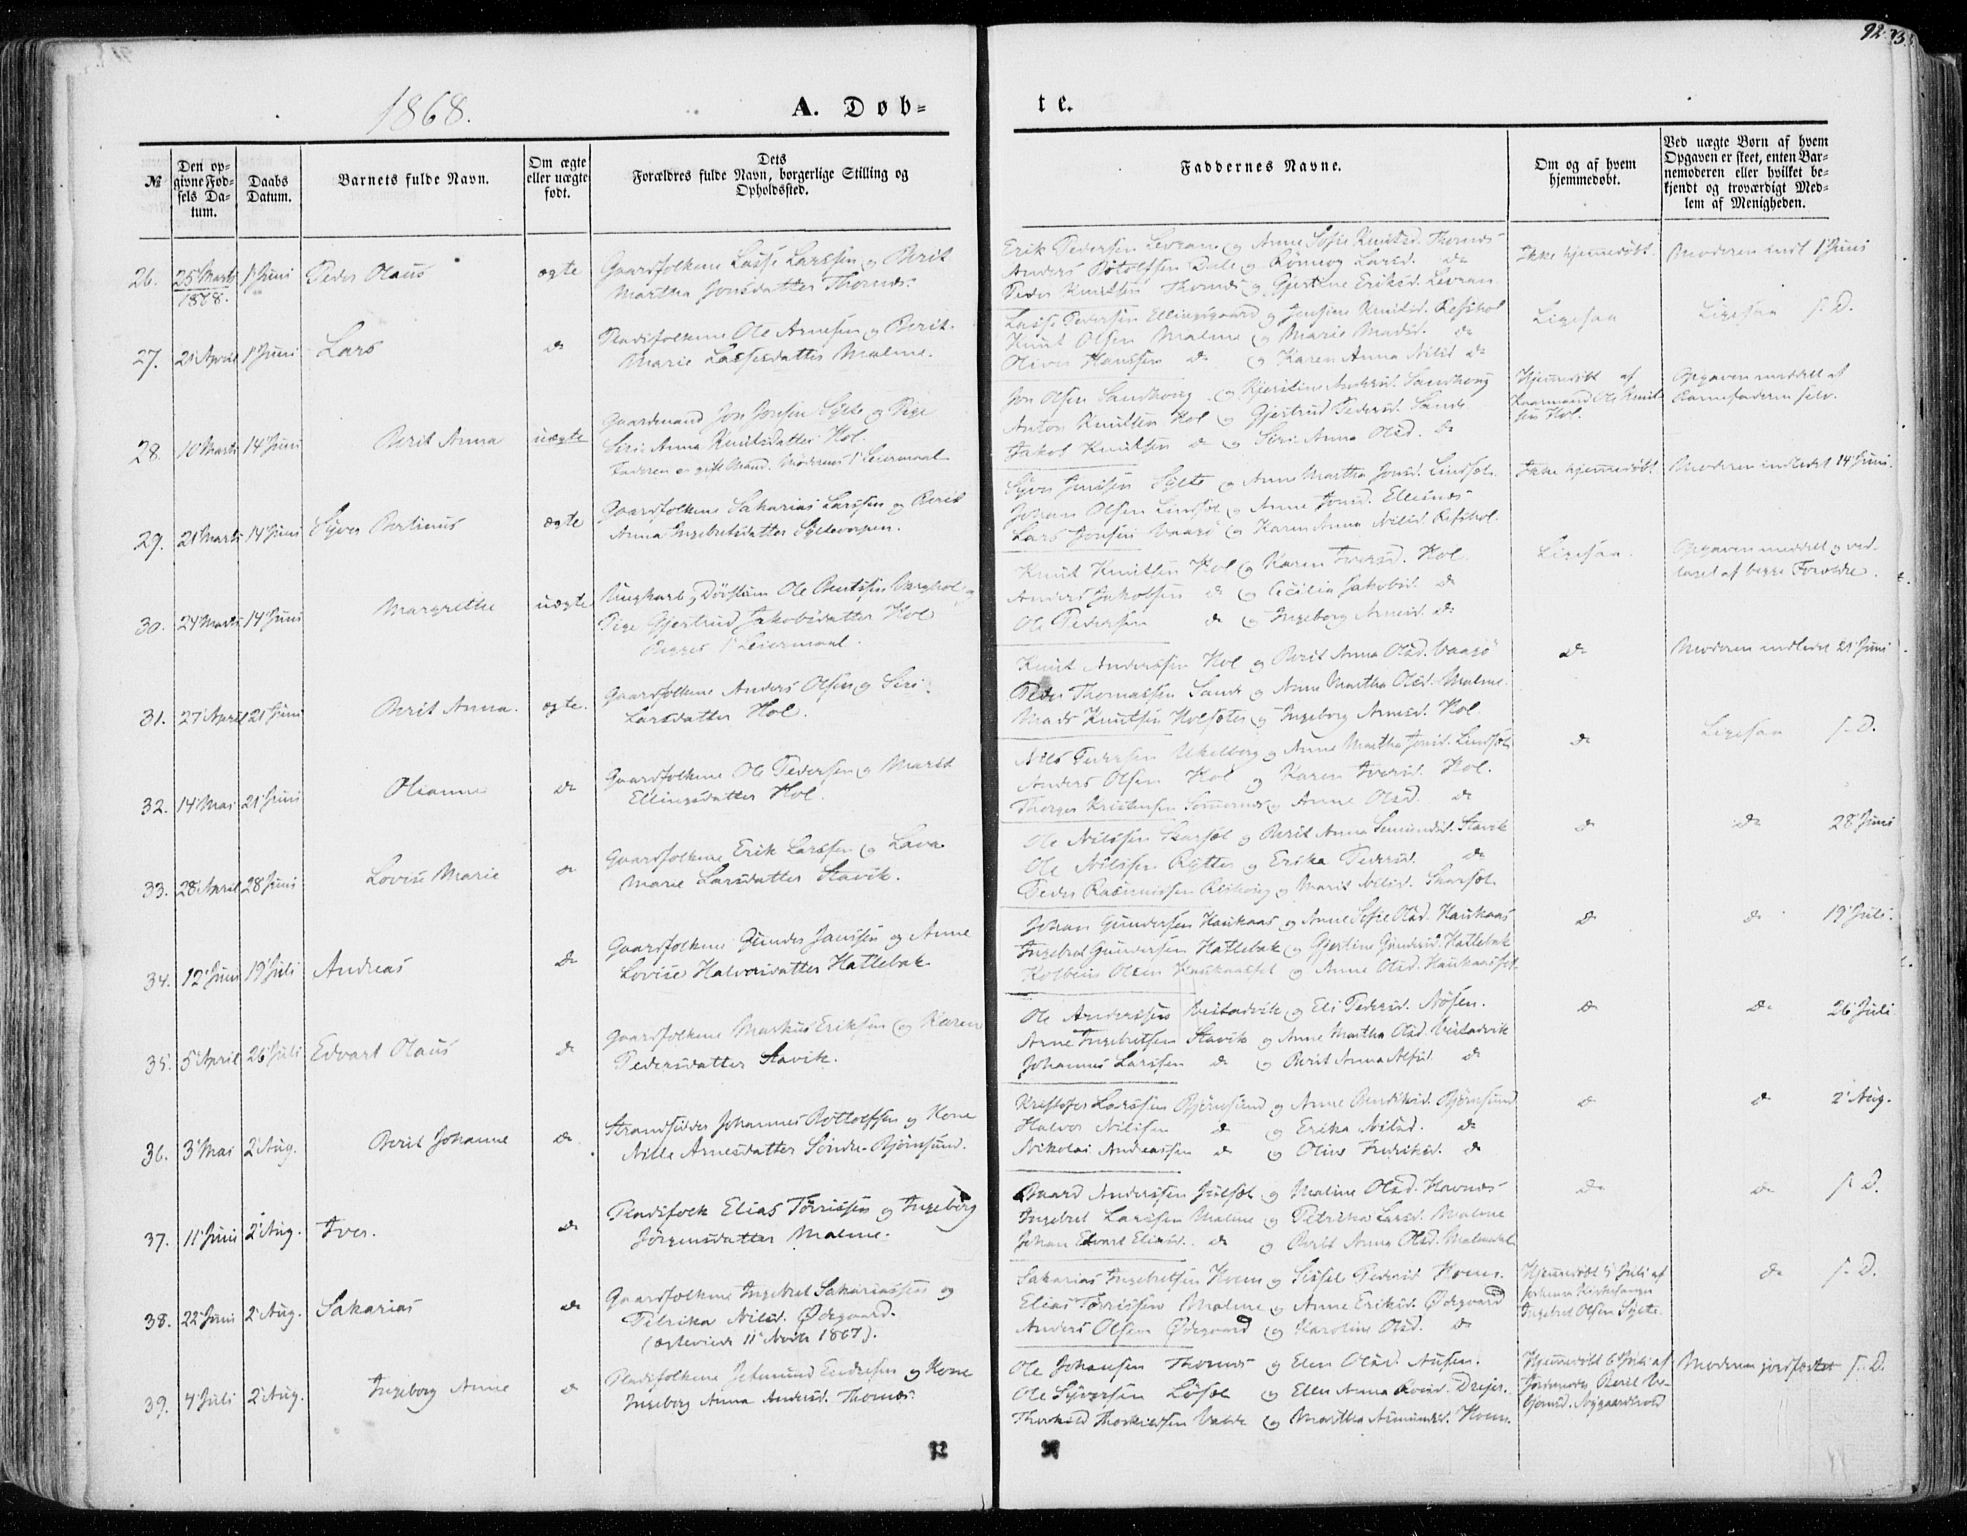 92.
1868.
A. Døb=
te.
№
Den op=
givne Fød=
sels Da=
tum.
Daabs
Datum.
Barnets fulde Navn.
Om ægte
eller uægte
født.
Dets
Forældres fulde Navn, borgerlige Stilling og
Opholdssted.
Faddernes Navne.
Om og af hvem
hjemmedøbt.
Ved uægte Børn af hvem
Opgaven er skeet, enten Bar=
nemoderen eller hvilket be=
kjendt og troværdigt Med=
lem af Menigheden.
26. 25 Marts 1868. 1 Juni Peder Olaus ægte
Gaardfolkene Lasse Larssen og Berit
Martha Jonsdatter Thornes.
Erik Pedersen Levran og Anne Sofie Knutsd. Thornes
Anders Botolfsen Dale og Rønnog Larsd. do
Peder Knutsen Thornes og Gjertine Eriksd. Levran
Ikke hjemmedøbt. Moderen indl 1 Juni
27. 21 April 1 Juni Lars do
Pladsfolkene Ole Arnesen og Berit
Marie Lassesdatter Malme.
Lasse Pedersen Ellingsgaard og Jensine Knutsd. Refshol
Knut Olsen Malme og Marie Madsd. do
Oliver Hanssen do og Karen Anna Nilsd do
Ligesaa Ligesaa s. D.
28. 10 Marts 14 Juni Berit Anna uægte
Gaardmand Jon Jonsen Sylte og Pige
Siri Anna Knutsdatter Hol.
Faderen er gift Mand. Moderens 1 Leiermaal
Jon Olsen Sandhoug og Kjerstine Andersd. Sandhoug
Anton Knutsen Hol og Gjertrud Pedersd. Sande
Jakob Knutsen do og Siri Anna Olsd. do
Hjemmedøbt af
Kaarmand Ole Knut-
sen Hol.
Opgaven meddelt af
Barnefaderen selv.
29. 21 Marts 14 Juni Syver Bertinus ægte
Gaardfolkene Sakarias Larssen og Berit
Anna Ingebretsdatter Syltevorpen.
Syver Jenssen Sylte og Anne Martha Jonsd. Lindset
Johan Olsen Lindset og Anne Jonsd. Ellisnes
Lars Jonsen Vaagø og Karen Anna Nilsd. Refshol.
Ikke hjemmedøbt Moderen indledet 14 Juni.
30. 24 Marts 14 Juni Margrethe uægte
Ungkarl, Dørstium Ole Bentssen Varghol og
Pige Gjertrud Jakobsdatter Hol
Begges 1 Leiermaal.
Knut Knutsen Hol og Karen Iversd. Hol
Anders Jakobsen do og Cecilia Jakobsd. do
Ole Pedersen do og Ingeborg Arnesd. do
Ligesaa. Opgaven meddelt og ved-
taget af begge Forældre.
31. 27 April 21 Juni Berit Anna. ægte.
Gaardfolkene Anders Olsen og Siri
Larsdatter Hol.
Knut Anderssen Hol og Berit Anna Olsd. Vaagø
Peder Thomassen Sande og Anne Martha Olsd. Malme
Mads Knutsen Holsæter og Ingeborg Arnesd. Hol
do Moderen indledet 21 Juni
32. 14 Mai 21 Juni Olianne do
Gaardfolkene Ole Pedersen og Marit
Ellingsdatter Hol.
Nils Pedersen Ukelberg og Anne Martha Jonsd. Lindset
Anders Olsen Hol og Karen Iversd. Hol.
Thorger Kristensen Sommernes og Anne Olsd. do
do Ligesaa s. D.
33. 28 April 28 Juni Lovise Marie do
Gaardfolkene Erik Larssen og Lava
Marie Larsdatter Stavik.
Ole Nilssen Skarset og Berit Anna Semundsd. Stavik
Ole Nilssen Rytter og Erika Pedersd. do
Peder Rasmussen og Marit Nilsd. Skarset
do do 28 Juni
34. 12 Juni 19 Juli Andreas do
Gaardfolkene Gunder Janssen og Anne
Lovise Halvorsdatter Hatlebak
Johan Gundersen Haukaas og Anne Sofie Olsd. Haukaas
Ingebret Gundersen Hatlebak og Gjertine Gundersd. Hatlebak
Kolbeins Olsen Haukaasset og Anne Olsd. Haukaasset
do do 19 Juli.
35. 5 April 26 Juli Edvart Olaus do
Gaardfolkene Markus Eriksen og Karen
Pedersdatter Stavik.
Ole Anderssen Vestadvik og Eli Pedersd. Nøsen.
Arne Ingebretsen Stavik og Anne Martha Olsd. Vestadvik
Johannes Larssen do og Berit Anna Alfsd. do
do do 26 Juli
36. 3 Mai 2 Aug. Berit Johanne do
Strandsidder Johannes Bottolfssen og Kone
Nille Arnesdatter Søndre-Bjørnsund.
Kristofer Larssen Bjørnsund og Anne Bendiksd. Bjørnsund
Halvor Nilssen do og Erika Nilsd. do
Nikolai Andreassen do og Oline Fredriksd. do
do do 2 Aug.
37. 11 Juni 2 Aug. Iver. do
Pladsfolk Elias Tørrissen og Ingeborg
Jørgensdatter Malme.
Baard Anderssen Julset og Maline Olsd. Havnes
Ingebret Larssen Malme og Petrika Larsd. Malme
Johan Edvart Eliasd. do og Berit Anna Olsd. Malmedal
do do s. D.
38. 22 Juni 2 Aug. Sakarias do
Gaardfolkene Ingebret Sakariassen og
Petrika Nilsd. Ødegaard.
(ægteviede 11 Novbr 1867).
Sakarias Ingebretsen Hoem og Sissel Pedersd Hoem.
Elias Tørrissen Malme og Anne Eriksd. Ødegaard
Anders Olsen Ødegaard og Karoline Olsd. do
Hjemmedøbt 5 Juli af
Kirkesanger
Ingebret Olsen Sylte.
do s. D.
39. 4 Juli 2 Aug. Ingeborg Anne do
Pladsfolkene Jetmund Endresen og Kone
Ingeborg Anna Andersd. Thornes
Ole Johansen Thornes og Elen Olsd. Ausen.
Ole Syversen Løset og Ellen Anna Roesd. Drejer.
Thorkild Thorkildsen Vabde og Martha Asmundsd. Hoem.
Hjemmedøbt 6 Juli af
Jordmoder Berit
Nygaardshold
Moderen jordfæstet s. D.